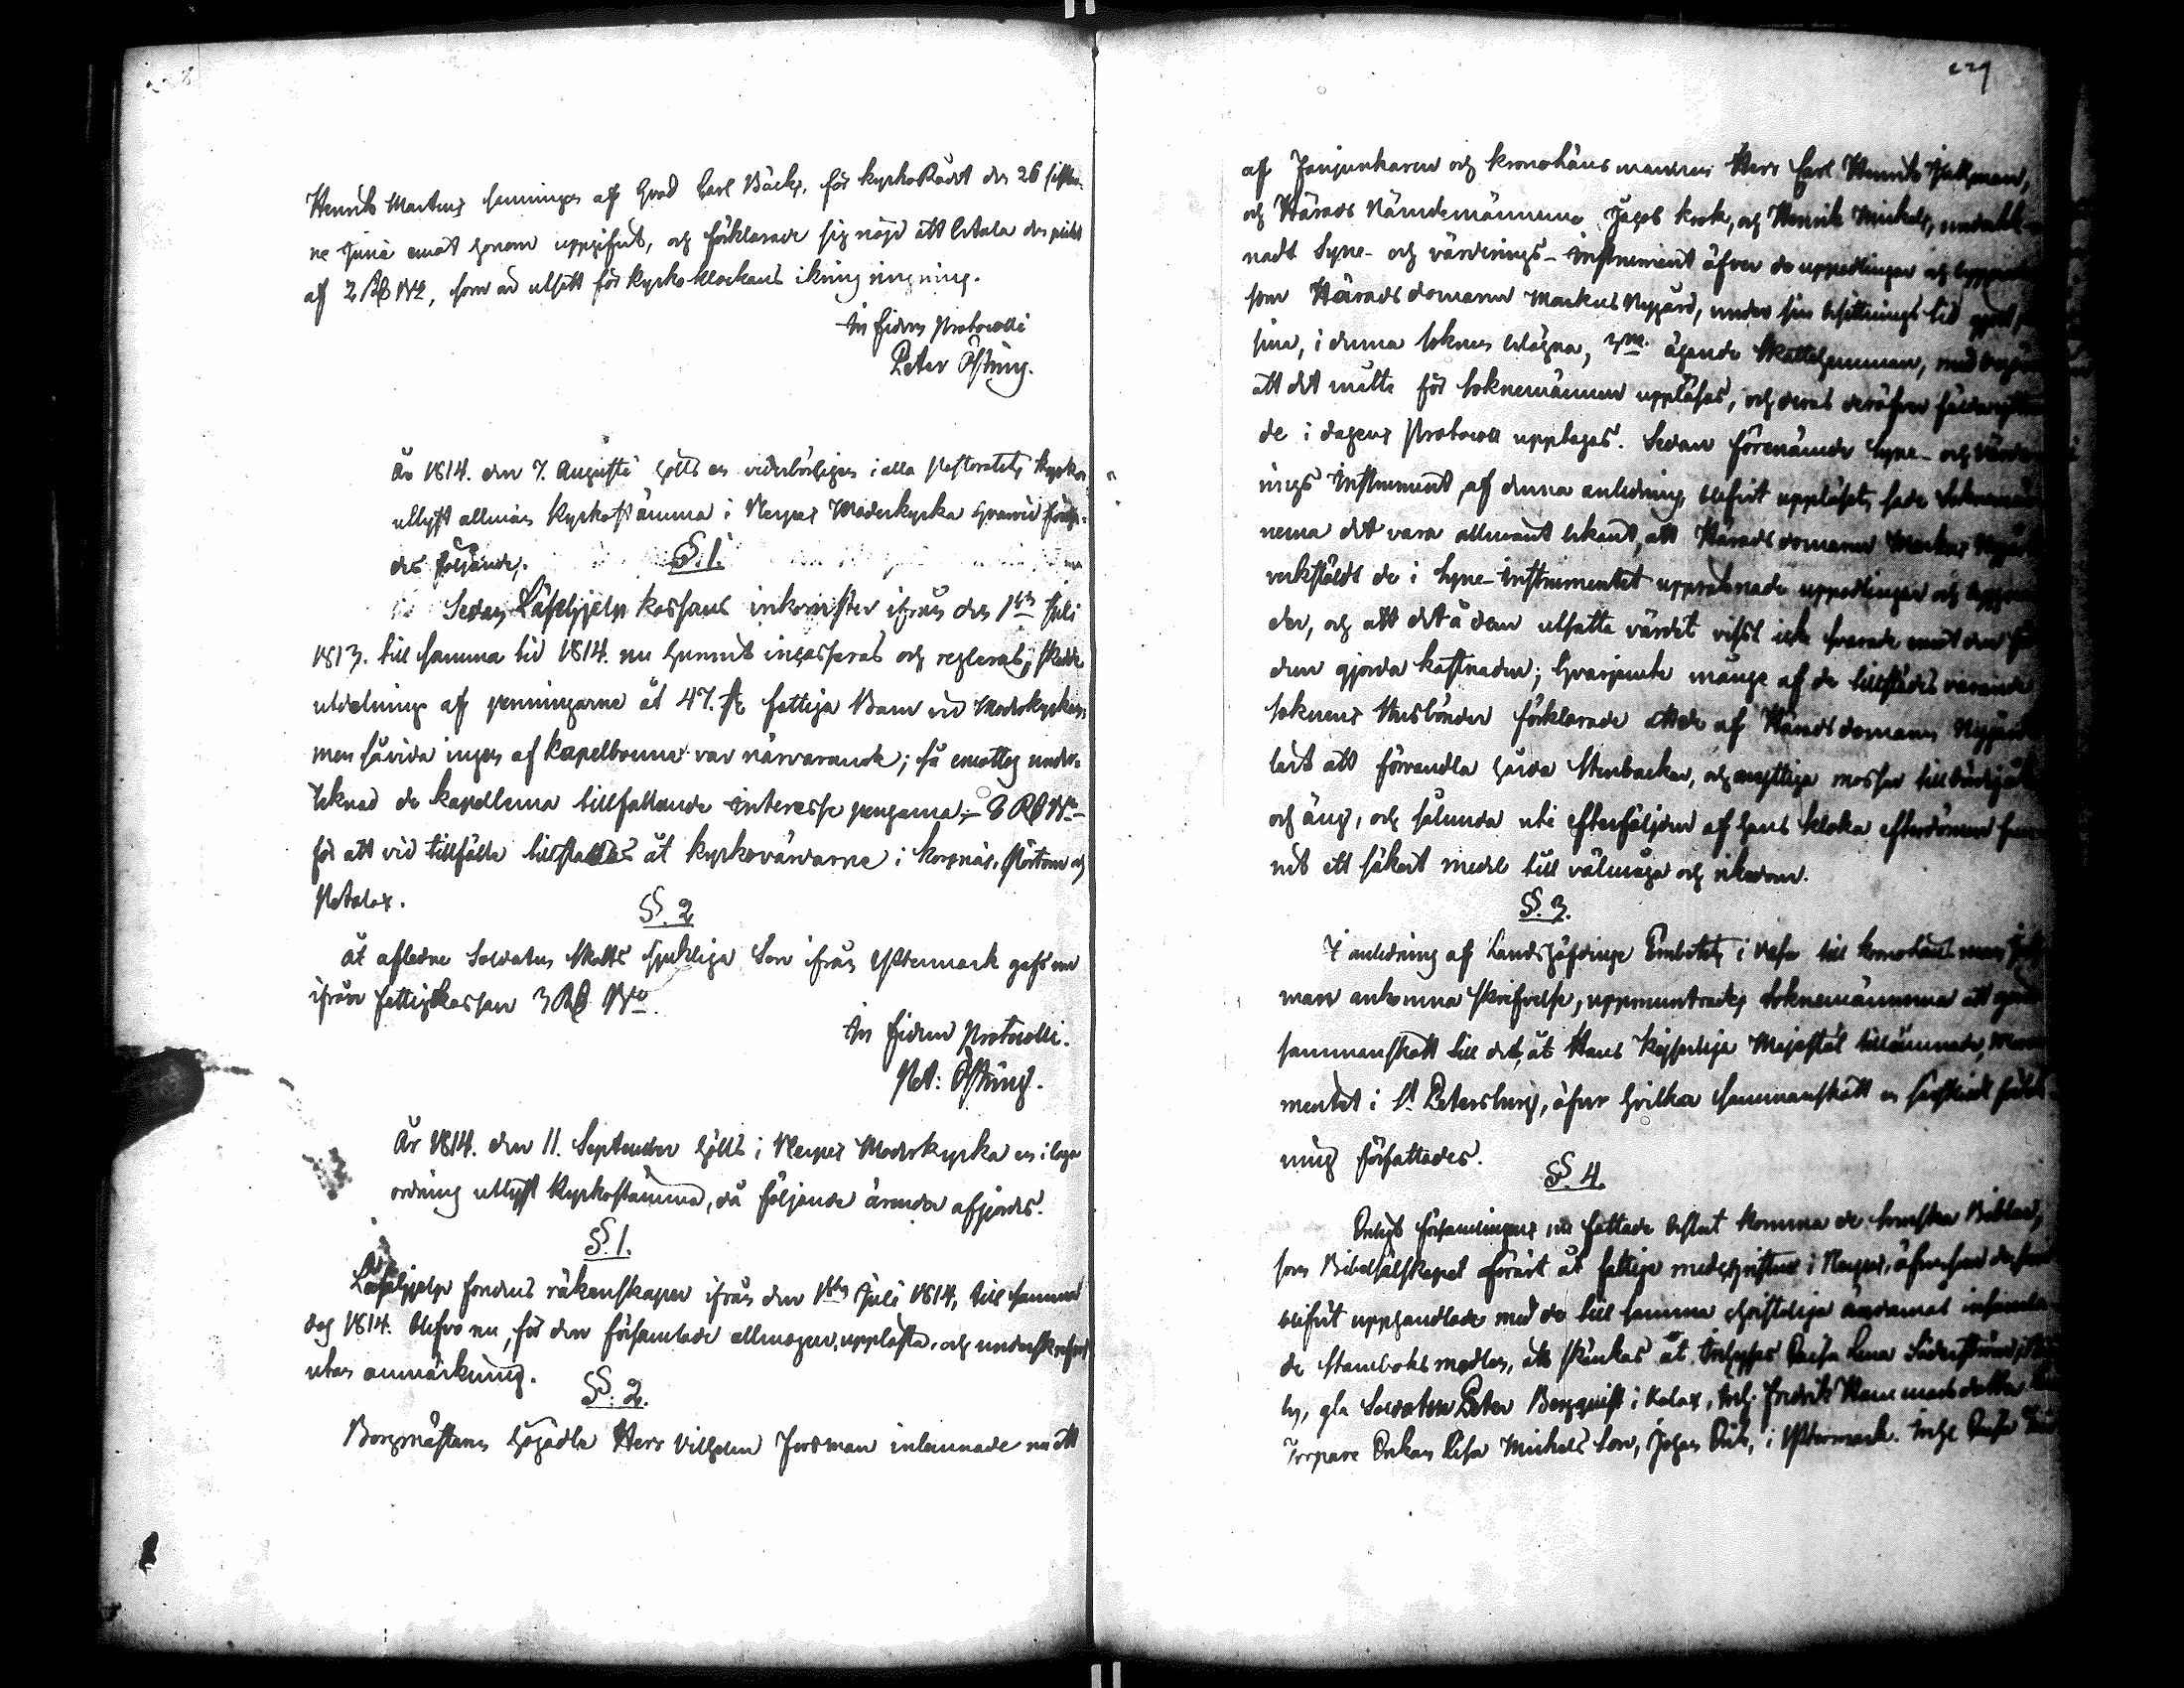 228
Henrik Martens sanningen af hvad Carl Bäck, för kyrkoRådet den 26 sistl.
ne Junii emot honom uppgifvit, och förklarade sig nöjd att betala den plikt
af 2 Rd Bko, som är utsatt för kyrko-klockans ikring ringning.
In fidem Protocolli
Peter Östring.
År 1814. den 7. Augusti hölts en vederbörligen i alla Pastoratets kyrkor
utlyst allmän kyrkostämma i Nerpes Moderkyrka hvarvid
des följande.
§. 1.
Sedan Läsehjelp kassans inkomster ifrån den 1sta Juli
1813. till samma tid 1814. nu hunnit incasseras och regleras; skedde
utdelning af penningarne åt 47. st. fattiga Barn vid Moderkyrkan,
men såvida ingen af kapelboerne var närvarande; så emottog under-
teknad de kapellerna tillfallande interesse pengarna - 8 Rd Bko -
för att vid tillfälle tillställas åt kyrkovärdarne i Korsnäs, Pörtom och
Petalax.
§. 2
Åt aflidne Soldaten Skotts sjukliga Son ifrån Yttermark gafs nu
ifrån fattigkassan 3 Rd Bko.
In fidem Protocolli.
Pet: Östring.
År 1814. den 11. September hölts i Nerpes Moderkyrka en i laga
ordning utlyst kyrkostämma, då följande ärender afgjordes.
§. 1.
Läsehjelps fondens räkenskaper ifrån den 1sta Juli 1814, till samma
dag 1814. blefvo nu, för den församlade allmogen, upplästa, och underskrefvos
utan anmärkning.
§. 2.
Borgmästaren Högädle Herr Vilhelm Forsman inlemnade nu ett
229
af Fanjunkaren och kronolänsmannen Herr Carl Henrik
och Härads Nämdemännerne Jacob Krok, och Henrik Mickels,
nadt Syne- och värderings-Instrument öfver de uppodlingar och
som Häradsdomaren Markus Nygård, under sin besittningstid gjort,
sine, i denna soknen belägna, 3ne ägande Skattehemman, med begäran
att det måtte för soknemännen uppläsas, och deras deröfver
de i dagens Protocoll upptagas. Sedan förenämde Syne- och
nings Instrument, af denna anledning blefvit uppläset, sade Soknemän
nerna det vara allmänt bekant, att Häradsdomaren Markus Nygård
verkstäldt de i Syne-instrumentet uppräknade uppodlingar och
der, och att det å dem utsatte värdet visst icke svarade emot den
dem gjorda kostnaden; hvarjemte månge af de tillstädes varande
soknens Husbönder förklarade att de af Häradsdomaren Nygård
lärt att förvandla hårda Stenbackar, och onyttiga mossar till
och äng, och sålunda uti efterföljden af hans kloka efterdömen fun
nit ett säkert medel till välmåga och rikedom.
§. 3.
I anledning af Landshöfdinge Embetets i Vasa till kronolänsman
man ankomna skrifvelse, uppmuntrades Soknemännerna att göra
sammanskott till det, åt Hans Kejserliga Majestät tillämnade,
mentet i St. Petersburg, öfver hvilken sammanskott en särskildt
ning författades.
§. 4.
Enligt församlingens nu fattade beslut komma de Svenska Biblar,
som Bibelsälskapet förärt åt fattige medchristne i Nerpes, äfvensom de som
blifvit upphandlade med de till samma christeliga ändamål insamla
de stamboksmedlen, att skänkas åt Inhyses Caisa Lena
by, gla Soldaten Peter Bergquist i Kalax, Inh. Fredrik
Torpare Enkan Lisa Mickels Son, Johan i Yttermark. Inhs Caisa